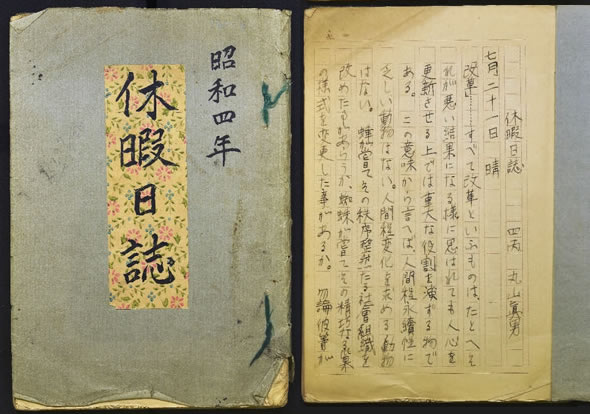 昭和四年
休暇日誌
休暇日誌 四丙 丸山眞男
七月二十一日 晴
改革……すべて改革といふものは、たとへそ
れが悪い結果になる様に思はれても人心を
更新させる上では重大な役割を演ずる物で
ある。この意味から言へば、人間程永續性に
乏しい動物はない。人間程変化を求める動物
はない。蜂が嘗てその秩序整然たる社會組織を
改めた事があらうか、蜘蛛が嘗てその精巧な巣
の様式を変更した事があるか。勿論彼等が